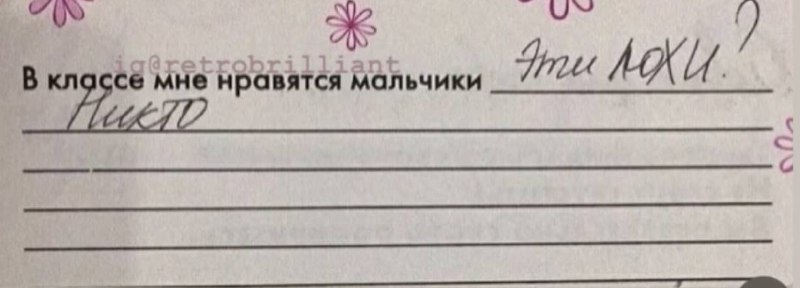 ig@retrobrilliant
В классе мне нравятся мальчики Эти лохи?
Никто